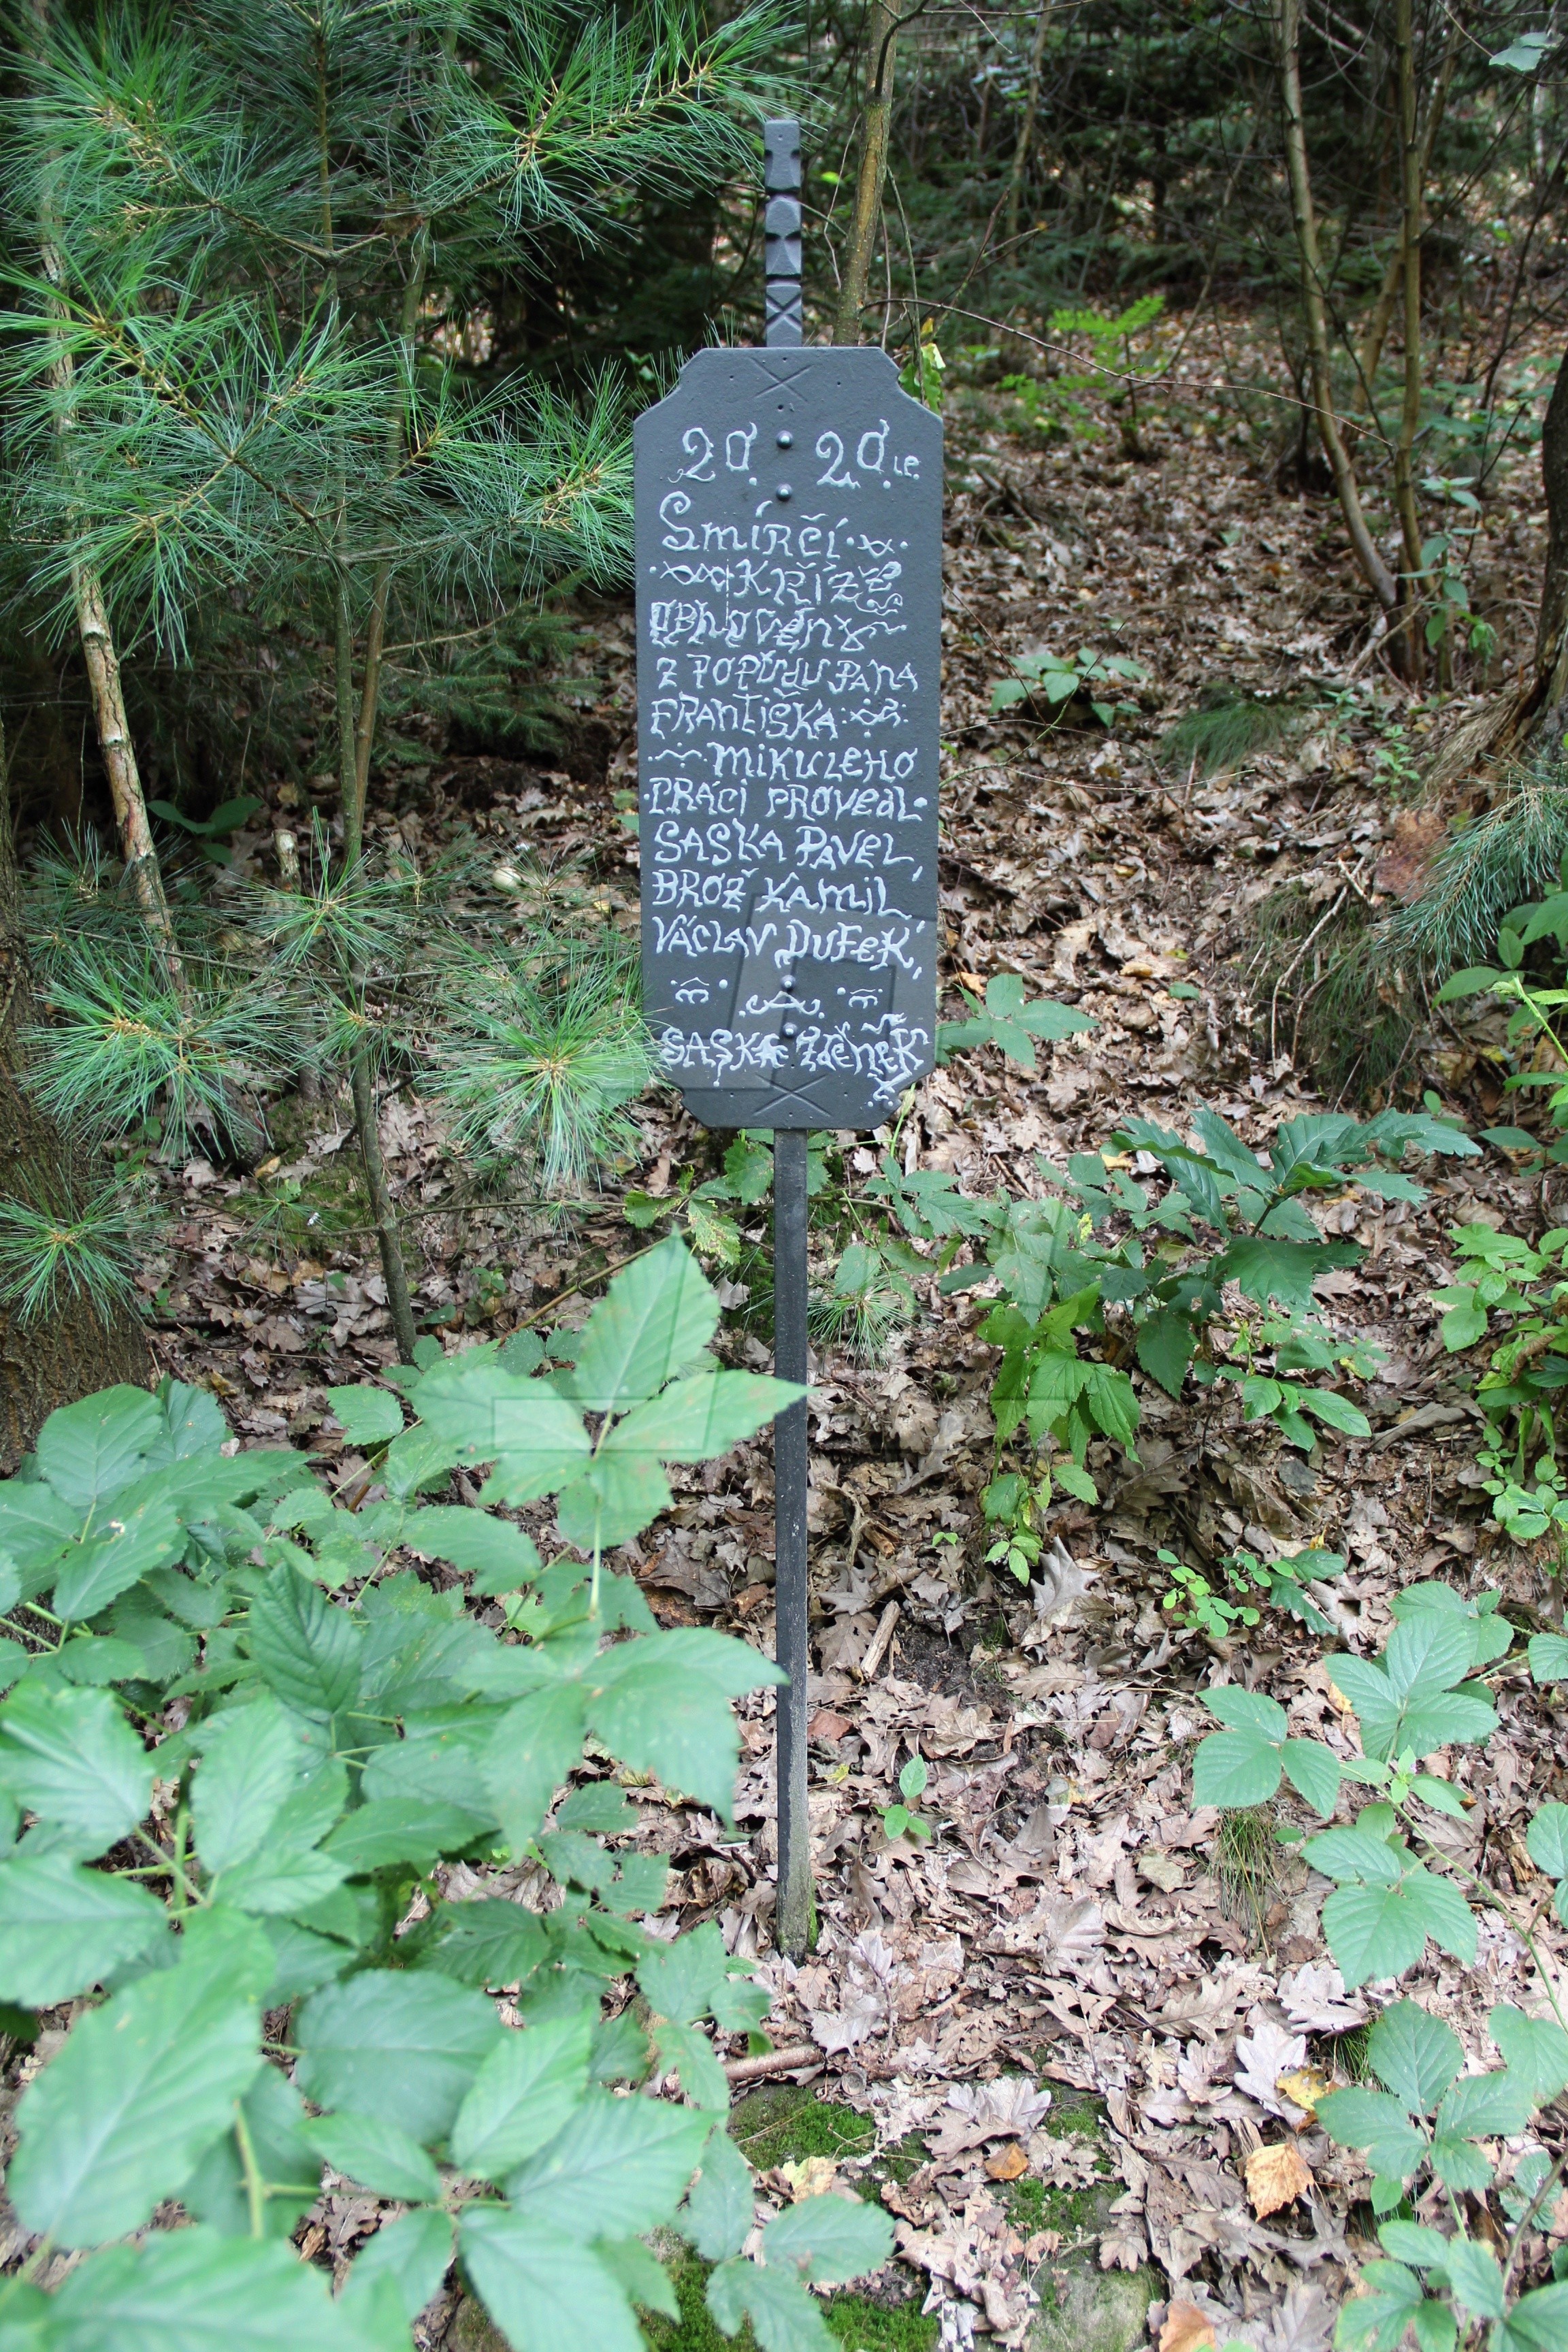 20. 20.LP.
Smírčí
KŘÍŽ
OBNOVENÝ
Z POPUDU PANA
FRANTIŠKA
MIKULEHO
PRÁCI PROVEDL
SASKA PAVEL,
BROŽ KAMIL,
VÁCLAV DUFEK,
SASKA ZDENĚK